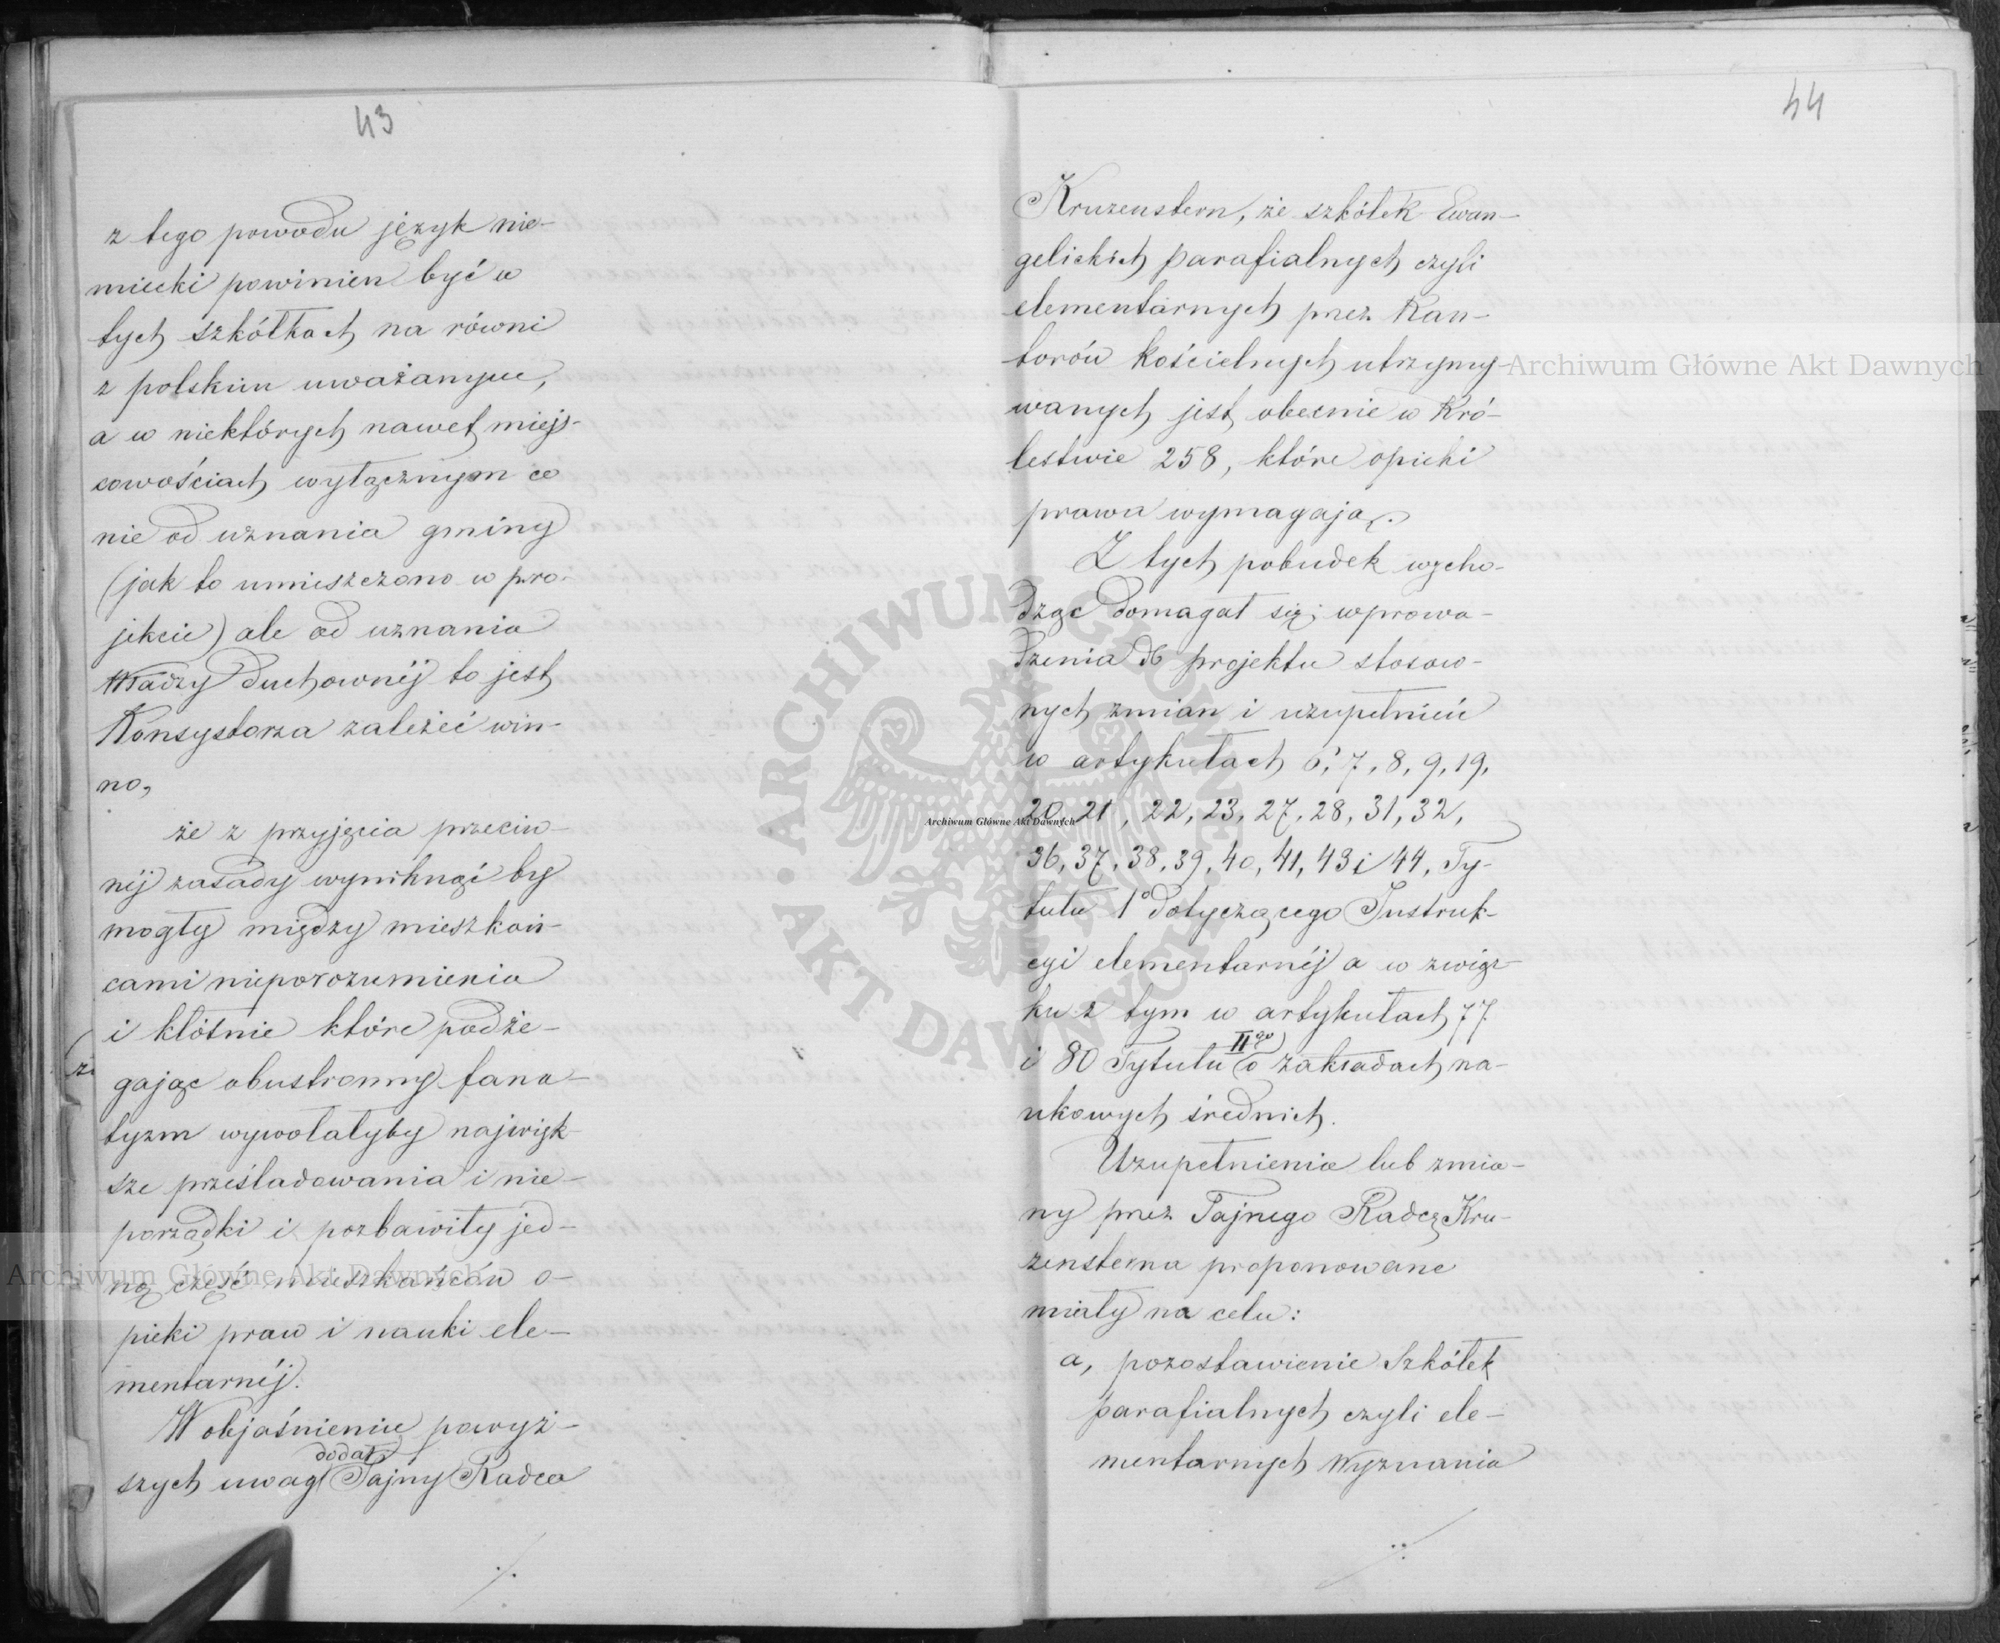 43
z tego powodu język nie-
miecki powinien być w
tych szkółkach na równi
z polskim uważanym,
a w niektórych nawet miejs-
cowościach wyłącznym co
nie od uznania gminy
(jak to umieszczono w pro-
jekcie) ale od uznania
Władzy Duchownéj to jest
Konsystorza zależéć win-
no,
że z przyjęcia przeciw-
néj zasady wyniknąć by
mogły między mieszkań-
cami nieporozumienia
i kłótnie które podże-
gając obustronny fana-
tyzm wywołałyby najwięk-
sze prześladowania i nie-
porządki i pozbawiły jed-
ną część mieszkańców o-
pieki praw i nauki ele-
mentarnéj.
W objaśnieniu powyż-
dodał
szych uwag Tajny Radca
44
Kruzenstern, że szkółek Ewan-
gelickich parafialnych czyli
elementarnych przez Kan-
torów kościelnych utrzymy-
wanych jest obecnie w Kró-
lestwie 258, które opieki
prawa wymagają.
Z tych pobudek wycho-
dząc domagał się wprowa-
dzenia do projektu stosow-
nych zmian i uzupełnień
w artykułach 6, 7, 8, 9, 19,
20, 21, 22, 23, 27, 28, 31, 32,
36, 37, 38, 39, 40, 41, 43 i 44, Ty-
tułu 1° dotyczącego Instruk-
cyi elementarnéj a w związ-
ku z tym w artykułach 77
IIgo
i 80 Tytułu o zakładach na-
ukowych średnich.
Uzupełnienia lub zmia-
ny przez Tajnego Radcę Kru-
zensterna proponowane
miały na celu:
a, pozostawienie Szkółek
parafialnych czyli ele-
mentarnych Wyznania
Archiwum Główne Akt Dawnych
Archiwum Główne Akt Dawnych
Archiwum Główne Akt Dawnych
ARCHIWUM GŁÓWNE
AKT DAWNYCH